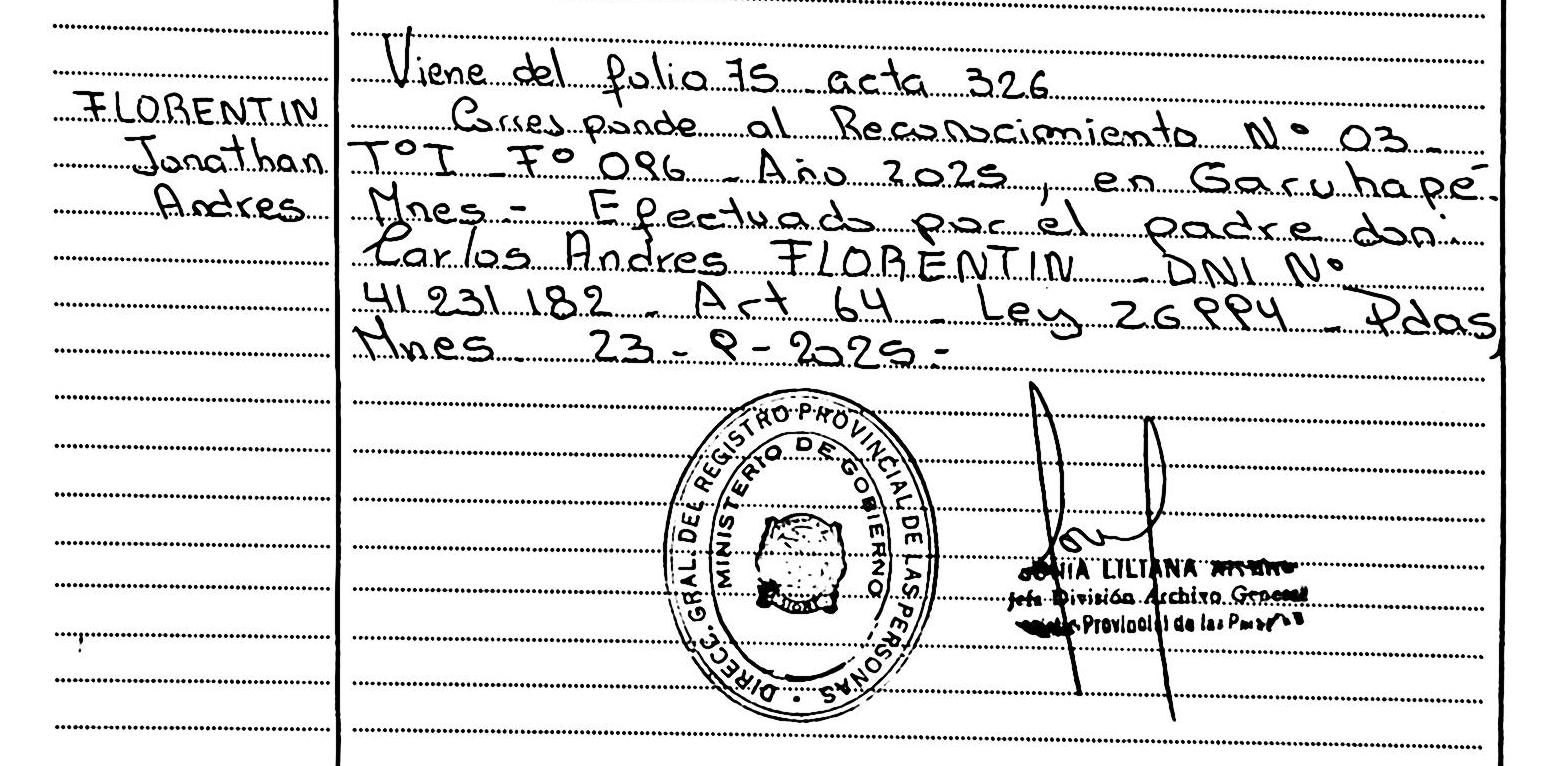 Viene del folio 75 acta 326
FLORENTIN
Jonathan
Andres
Corresponde al Reconocimiento N° 03 _
T° I _ F° 096 _ Año 2025, en Garuhapé.
Mnes - Efectuado por el padre don:
Carlos Andres FLORENTIN _ DNI N°
41.231.182 _ Art 64 _ Ley 26994 _ Pdas,
Mnes. 23 - 9 - 2025 -
DIRECC. GRAL. DEL REGISTRO PROVINCIAL DE LAS PERSONAS
MINISTERIO DE GOBIERNO
SONIA LILIANA
Jefa División Archivo General
Provincial de las Personas